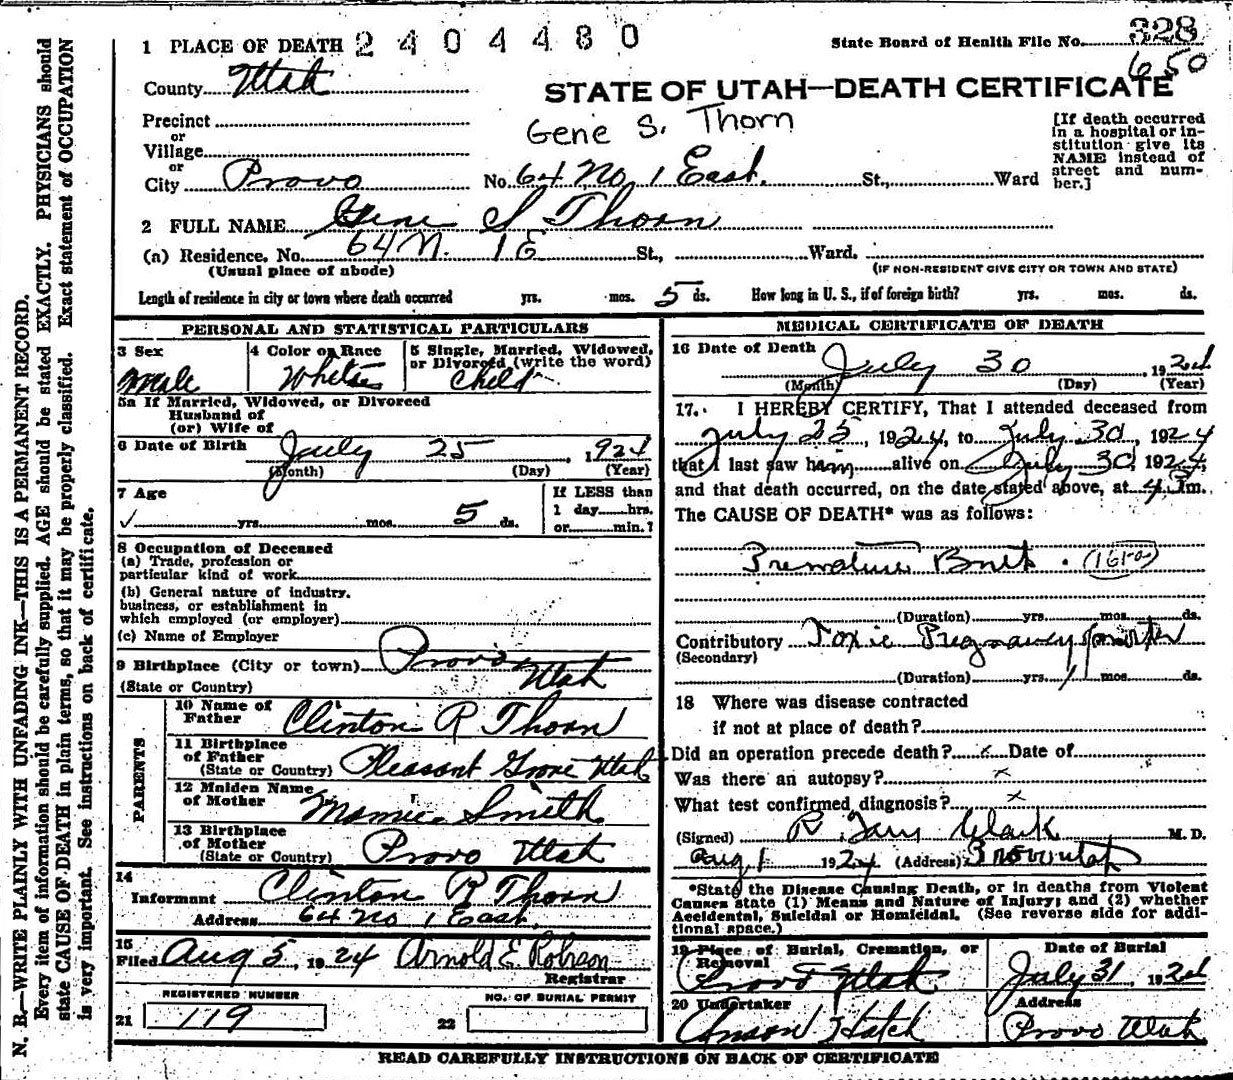 N. B.—WRITE PLAINLY WITH UNFADING INK—THIS IS A PERMANENT RECORD.
Every item of information should be carefully supplied. AGE should be stated EXACTLY. PHYSICIANS should
state CAUSE OF DEATH in plain terms, so that it may be properly classified. Exact statement of OCCUPATION
is very important. See instructions on back of certificate.
1 PLACE OF DEATH 2404480
State Board of Health File No. 328
650
County Utah
STATE OF UTAH—DEATH CERTIFICATE
Gene S. Thorn
Precinct
or
Village
or
City Provo No. 64 No. 1 East. St., Ward
[If death occurred
in a hospital or in-
stitution give its
NAME instead of
street and num-
ber.]
2 FULL NAME Gene S Thorn
(a) Residence. No. 64 N. 1 E St., Ward.
(Usual place of abode) (IF NON-RESIDENT GIVE CITY OR TOWN AND STATE)
Length of residence in city or town where death occurred yrs. mos. 5 ds. How long in U. S., if of foreign birth? yrs. mos. ds.
PERSONAL AND STATISTICAL PARTICULARS
3 Sex
Male
4 Color or Race
White
5 Single, Married, Widowed,
or Divorced (write the word)
Child
5a If Married, Widowed, or Divorced
Husband of
(or) Wife of
6 Date of Birth July 25, 1924
(Month) (Day) (Year)
7 Age
yrs. mos. 5 ds.
If LESS than
1 day hrs.
or min.?
8 Occupation of Deceased
(a) Trade, profession or
particular kind of work
(b) General nature of industry,
business, or establishment in
which employed (or employer)
(c) Name of Employer
9 Birthplace (City or town) Provo
(State or Country) Utah
PARENTS
10 Name of
Father Clinton R Thorn
11 Birthplace
of Father
(State or Country) Pleasant Grove Utah
12 Maiden Name
of Mother Mamie Smith
13 Birthplace
of Mother
(State or Country) Provo Utah
14
Informant Clinton R Thorn
Address 64 No 1 East
15
Filed Aug 5, 1924 Arnold E Robison
Registrar
REGISTERED NUMBER
21 119
NO. OF BURIAL PERMIT
22
MEDICAL CERTIFICATE OF DEATH
16 Date of Death
July 30, 1924
(Month) (Day) (Year)
17. I HEREBY CERTIFY, That I attended deceased from
July 25, 1924, to July 30, 1924
that I last saw him alive on July 30, 1924,
and that death occurred, on the date stated above, at 4 Pm.
The CAUSE OF DEATH* was as follows:
Premature Birth.
(Duration) yrs. mos. ds.
Contributory Toxic Pregnancy
(Secondary)
(Duration) yrs. 1 mos. ds.
18 Where was disease contracted
if not at place of death?
Did an operation precede death? x Date of
Was there an autopsy? x
What test confirmed diagnosis? x
(Signed) R Clark M. D.
Aug 1 1924 (Address) Provo Utah
*State the Disease Causing Death, or in deaths from Violent
Causes state (1) Means and Nature of Injury; and (2) whether
Accidental, Suicidal or Homicidal. (See reverse side for addi-
tional space.)
19 Place of Burial, Cremation, or
Removal
Provo Utah
Date of Burial
July 31, 1924
20 Undertaker
Anson Hatch
Address
Provo Utah
READ CAREFULLY INSTRUCTIONS ON BACK OF CERTIFICATE